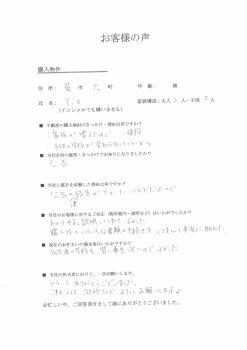 お客様の声
購入物件
住所： 呉市 町 年齢： 歳
氏名： Y.O 家族構成：大人 2 人・子供 3 人
（イニシャルでも構いません）
■ 不動産の購入検討のきっかけ・理由は何ですか？
・家族が増えたので
・子供の学校が変わらないでいいから
■ 当社を何の媒体・きっかけでお知りになりましたか？
広告
■ 当社に仲介を依頼した理由は何ですか？
広告の物件が
■ 当社のお客様に対するご対応（物件案内・説明など）はいかがでしたか？
わかりやすく説明してくれて、よかった
購入後のいろいろな書類の手続きもしてもらって本当に助かった。
■ 現在のお住まいの満足度はいかがですか？
子供達の学校も買い物も近いのでよかった。
■ 当社の担当者において、一言お願いします。
いろいろありがとうございました。
これからもよろしくお願いします
お忙しい中、ご回答頂きまして誠にありがとうございました。